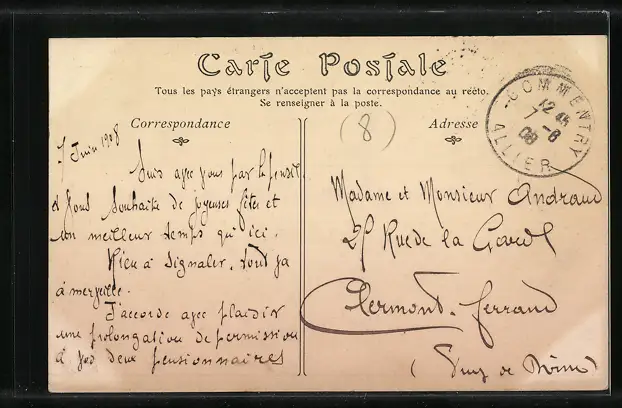 Carte Postale
Tous les pays étrangers n'acceptent pas la correspondance au recto.
Se renseigner à la poste.
Correspondance
(8)
Adresse
COMMENTRY
ALLIER
12
7 -6
08
7 Juin 1908
Suis avec vous par la pensée
et vous souhaite de joyeuses fêtes et
un meilleur temps qu'ici.
Rien à signaler. tout va
à merveille.
J'accorde avec plaisir
une prolongation de permission
à vos deux pensionnaires
Madame et Monsieur Andraud
Rue de la Garde
Clermont-Ferrand
(Puy de Dôme)